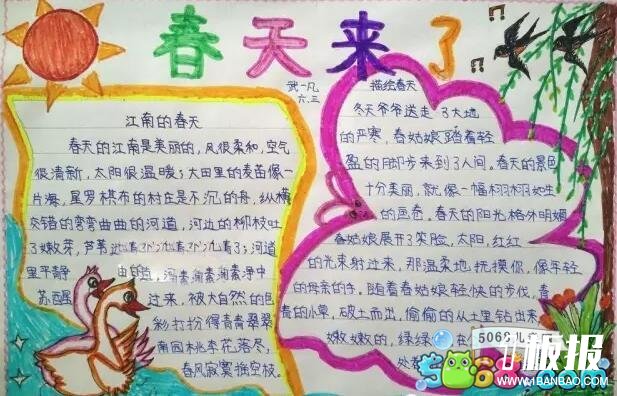 春天来了
武一凡
六.三
江南的春天
春天的江南是美丽的,风很柔和,空气
很清新,太阳很温暖;大田里的麦苗像一
片海,星罗棋布的村庄是不沉的舟,纵横
交错的弯弯曲曲的河道,河边的柳枝吐
了嫩芽,芦苇
了;河道
里平静
苏醒
过来,被大自然的色
彩打扮得青青翠翠
南园桃李花落尽,
春风寂寞摇空枝。
描绘春天
冬天爷爷送走了大地
的严寒,春姑娘踏着轻
盈的脚步来到了人间。春天的景色
十分美丽,就像一幅栩栩如生
的画卷。春天的阳光格外明媚
春姑娘展开了笑脸,太阳,红红
的光束射过来,那温柔地抚摸你,像年轻
的母亲的手,随着春姑娘轻快的步伐,青
青的小草,破土而出,偷偷的从土里钻出来
嫩嫩的,绿绿
5068儿童
1板报
5068.com
WWW.1BANBAO.COM